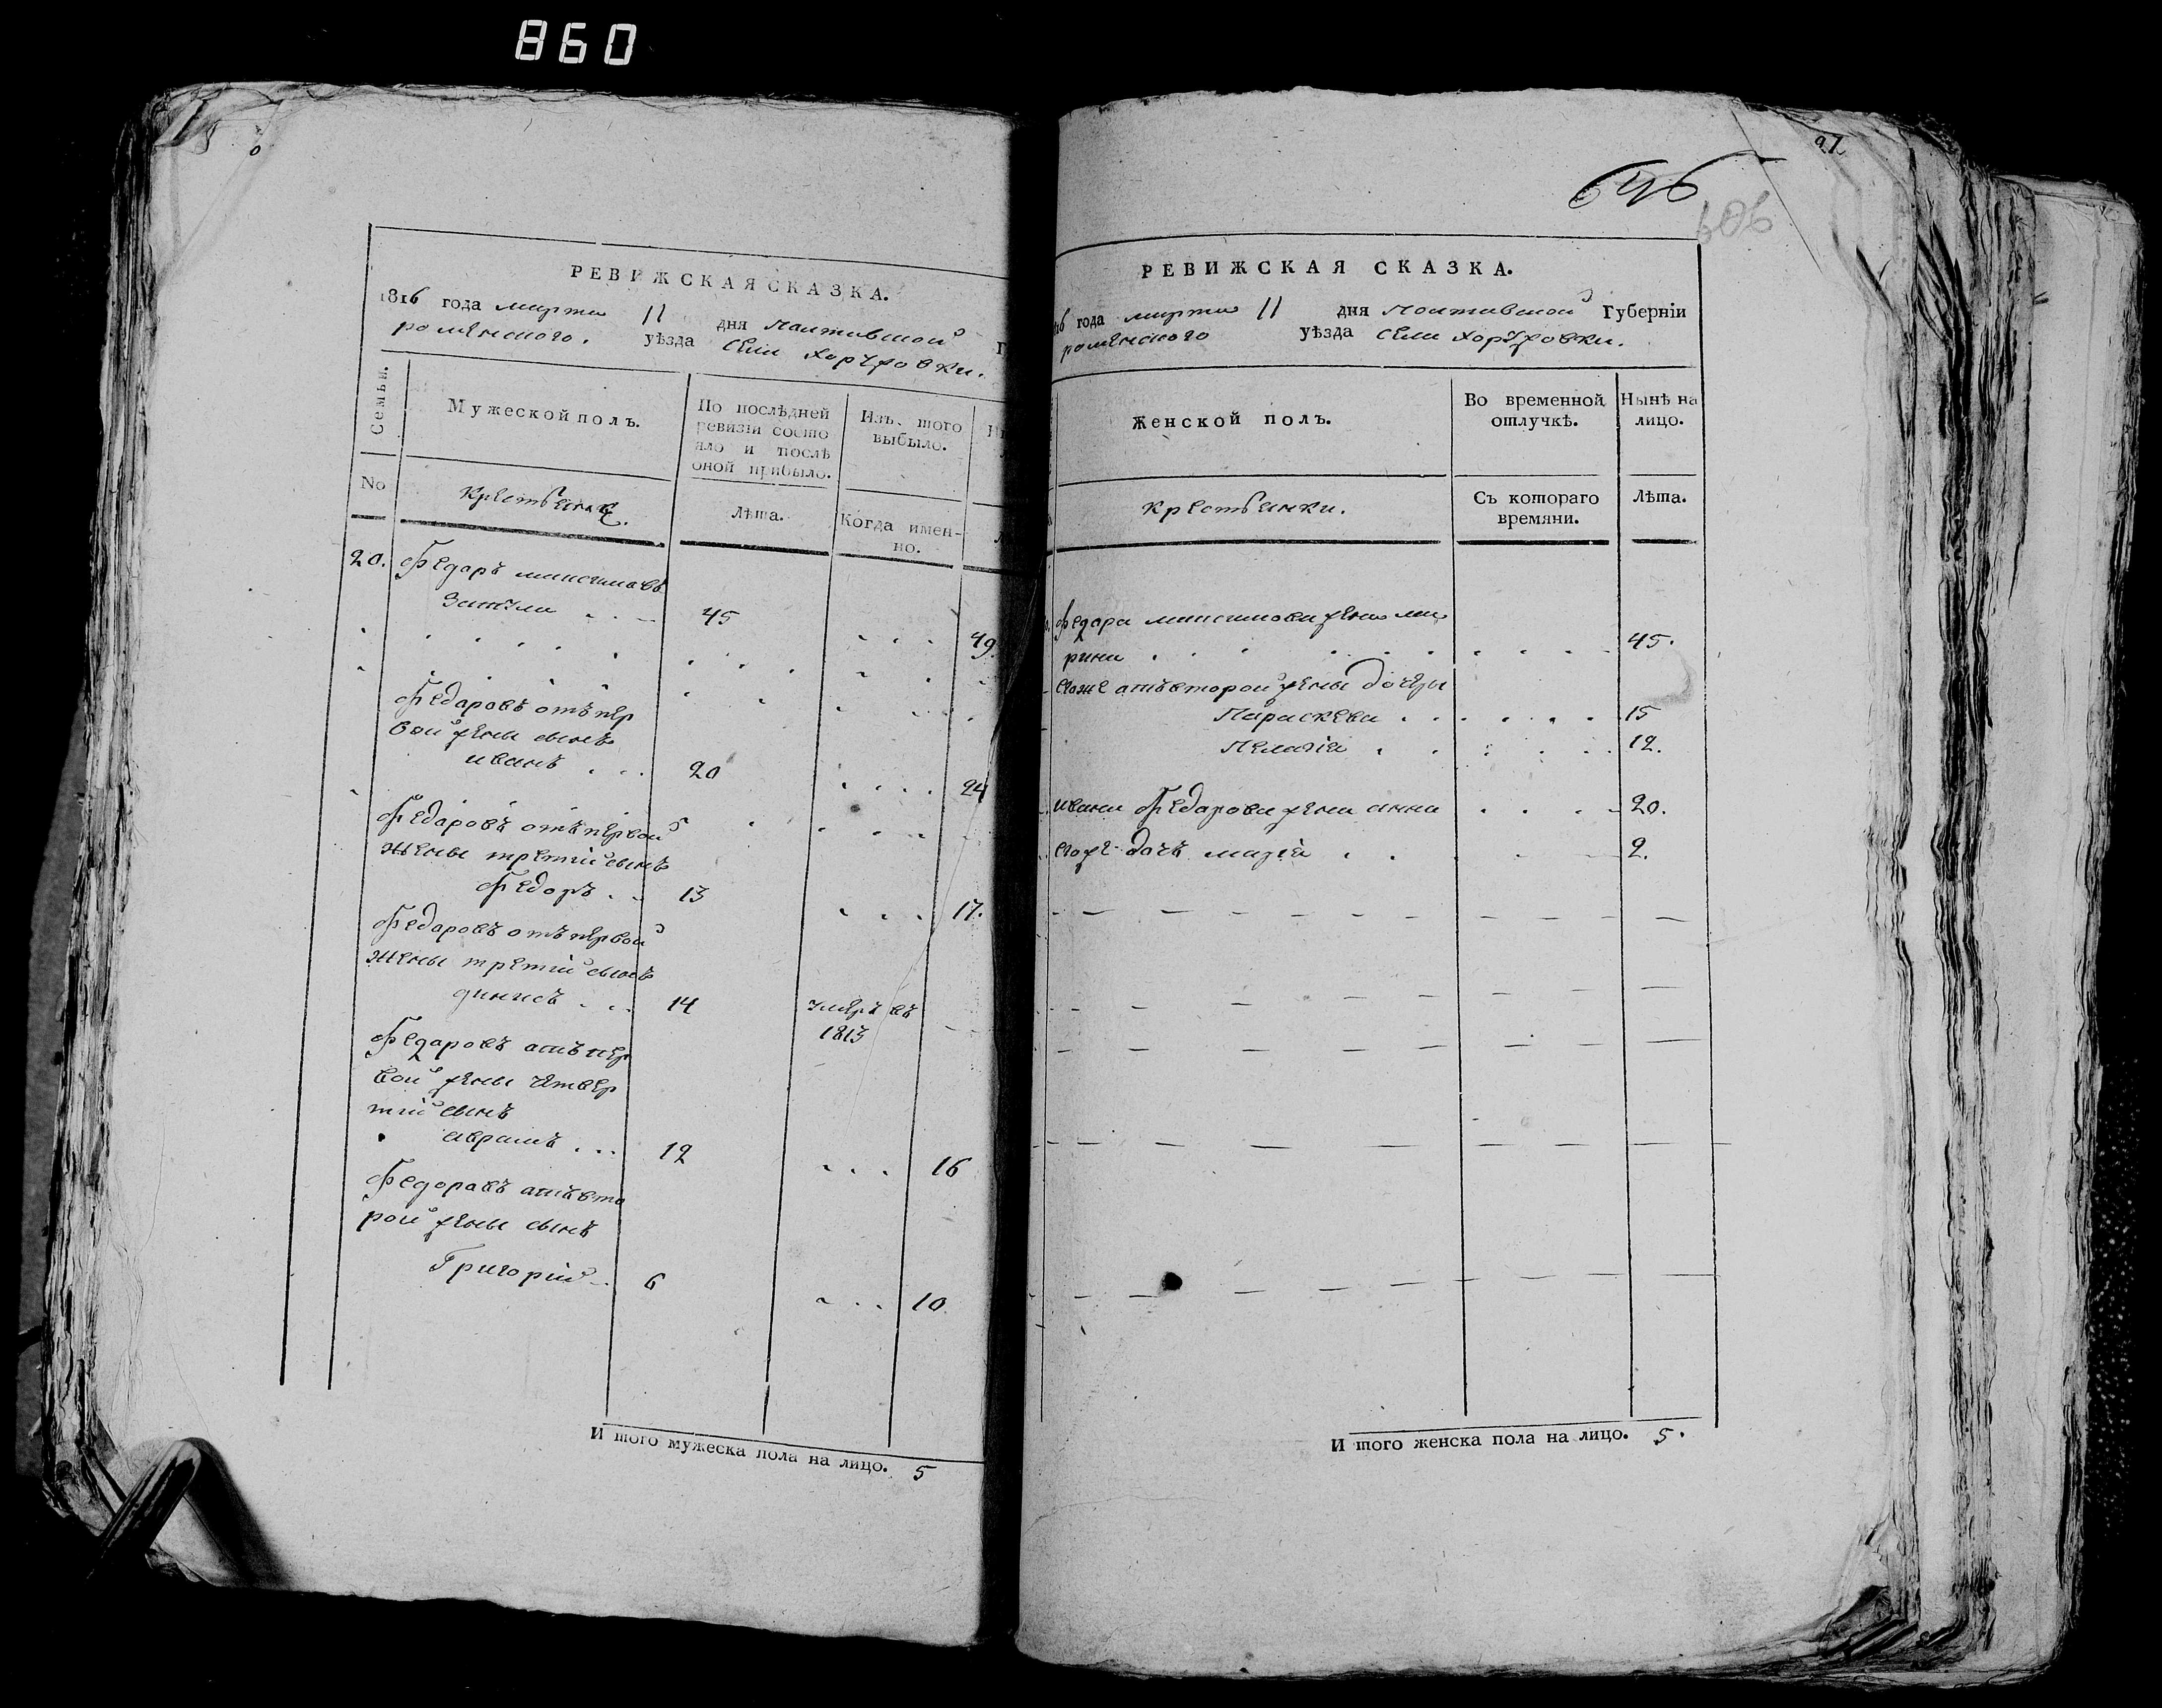 860
РЕВИЖСКАЯ СКАЗКА.
1816 года марта 11 дня полтавской Г
роменского. уѣзда села хоружовки.
Семьи.
Мужеской полъ.
По послѣдней
ревизіи состо
яло и послѣ
оной прибыло.
Изъ того
выбыло.
No
крестьяне.
Лѣта.
Когда имен-
но.
20. Федаръ
45
49.
Федаровъ отъ пер
вой жены сынъ
иванъ . . . 20 24
Федаровъ отъ первой
жены третий сынъ
Федоръ . . 13 17.
Федаровъ отъ первой
жены третий сынъ
14 умеръ въ
1813
Федаровъ атъ пер
вой жены четвер
тий сынъ
аврамъ . . . 12 16
Федоравъ атъ вто
рой жены сынъ
Григорий 6 10
И того мужеска пола на лицо. 5
97
646
606
РЕВИЖСКАЯ СКАЗКА.
16 года марта 11 дня полтавской Губерніи
роменского уѣзда села хоружовки.
Женской полъ.
Во временной
отлучкѣ.
Нынѣ на
лицо.
крестьянки.
Съ котораго
времяни.
Лѣта.
федара жена ма
рина 45.
егоже атъ второй жены дочеры
Параскева 15
Пелагія 12.
ивана Федарова жена анна 20.
егоже дочъ 2.
И того женска пола на лицо. 5.